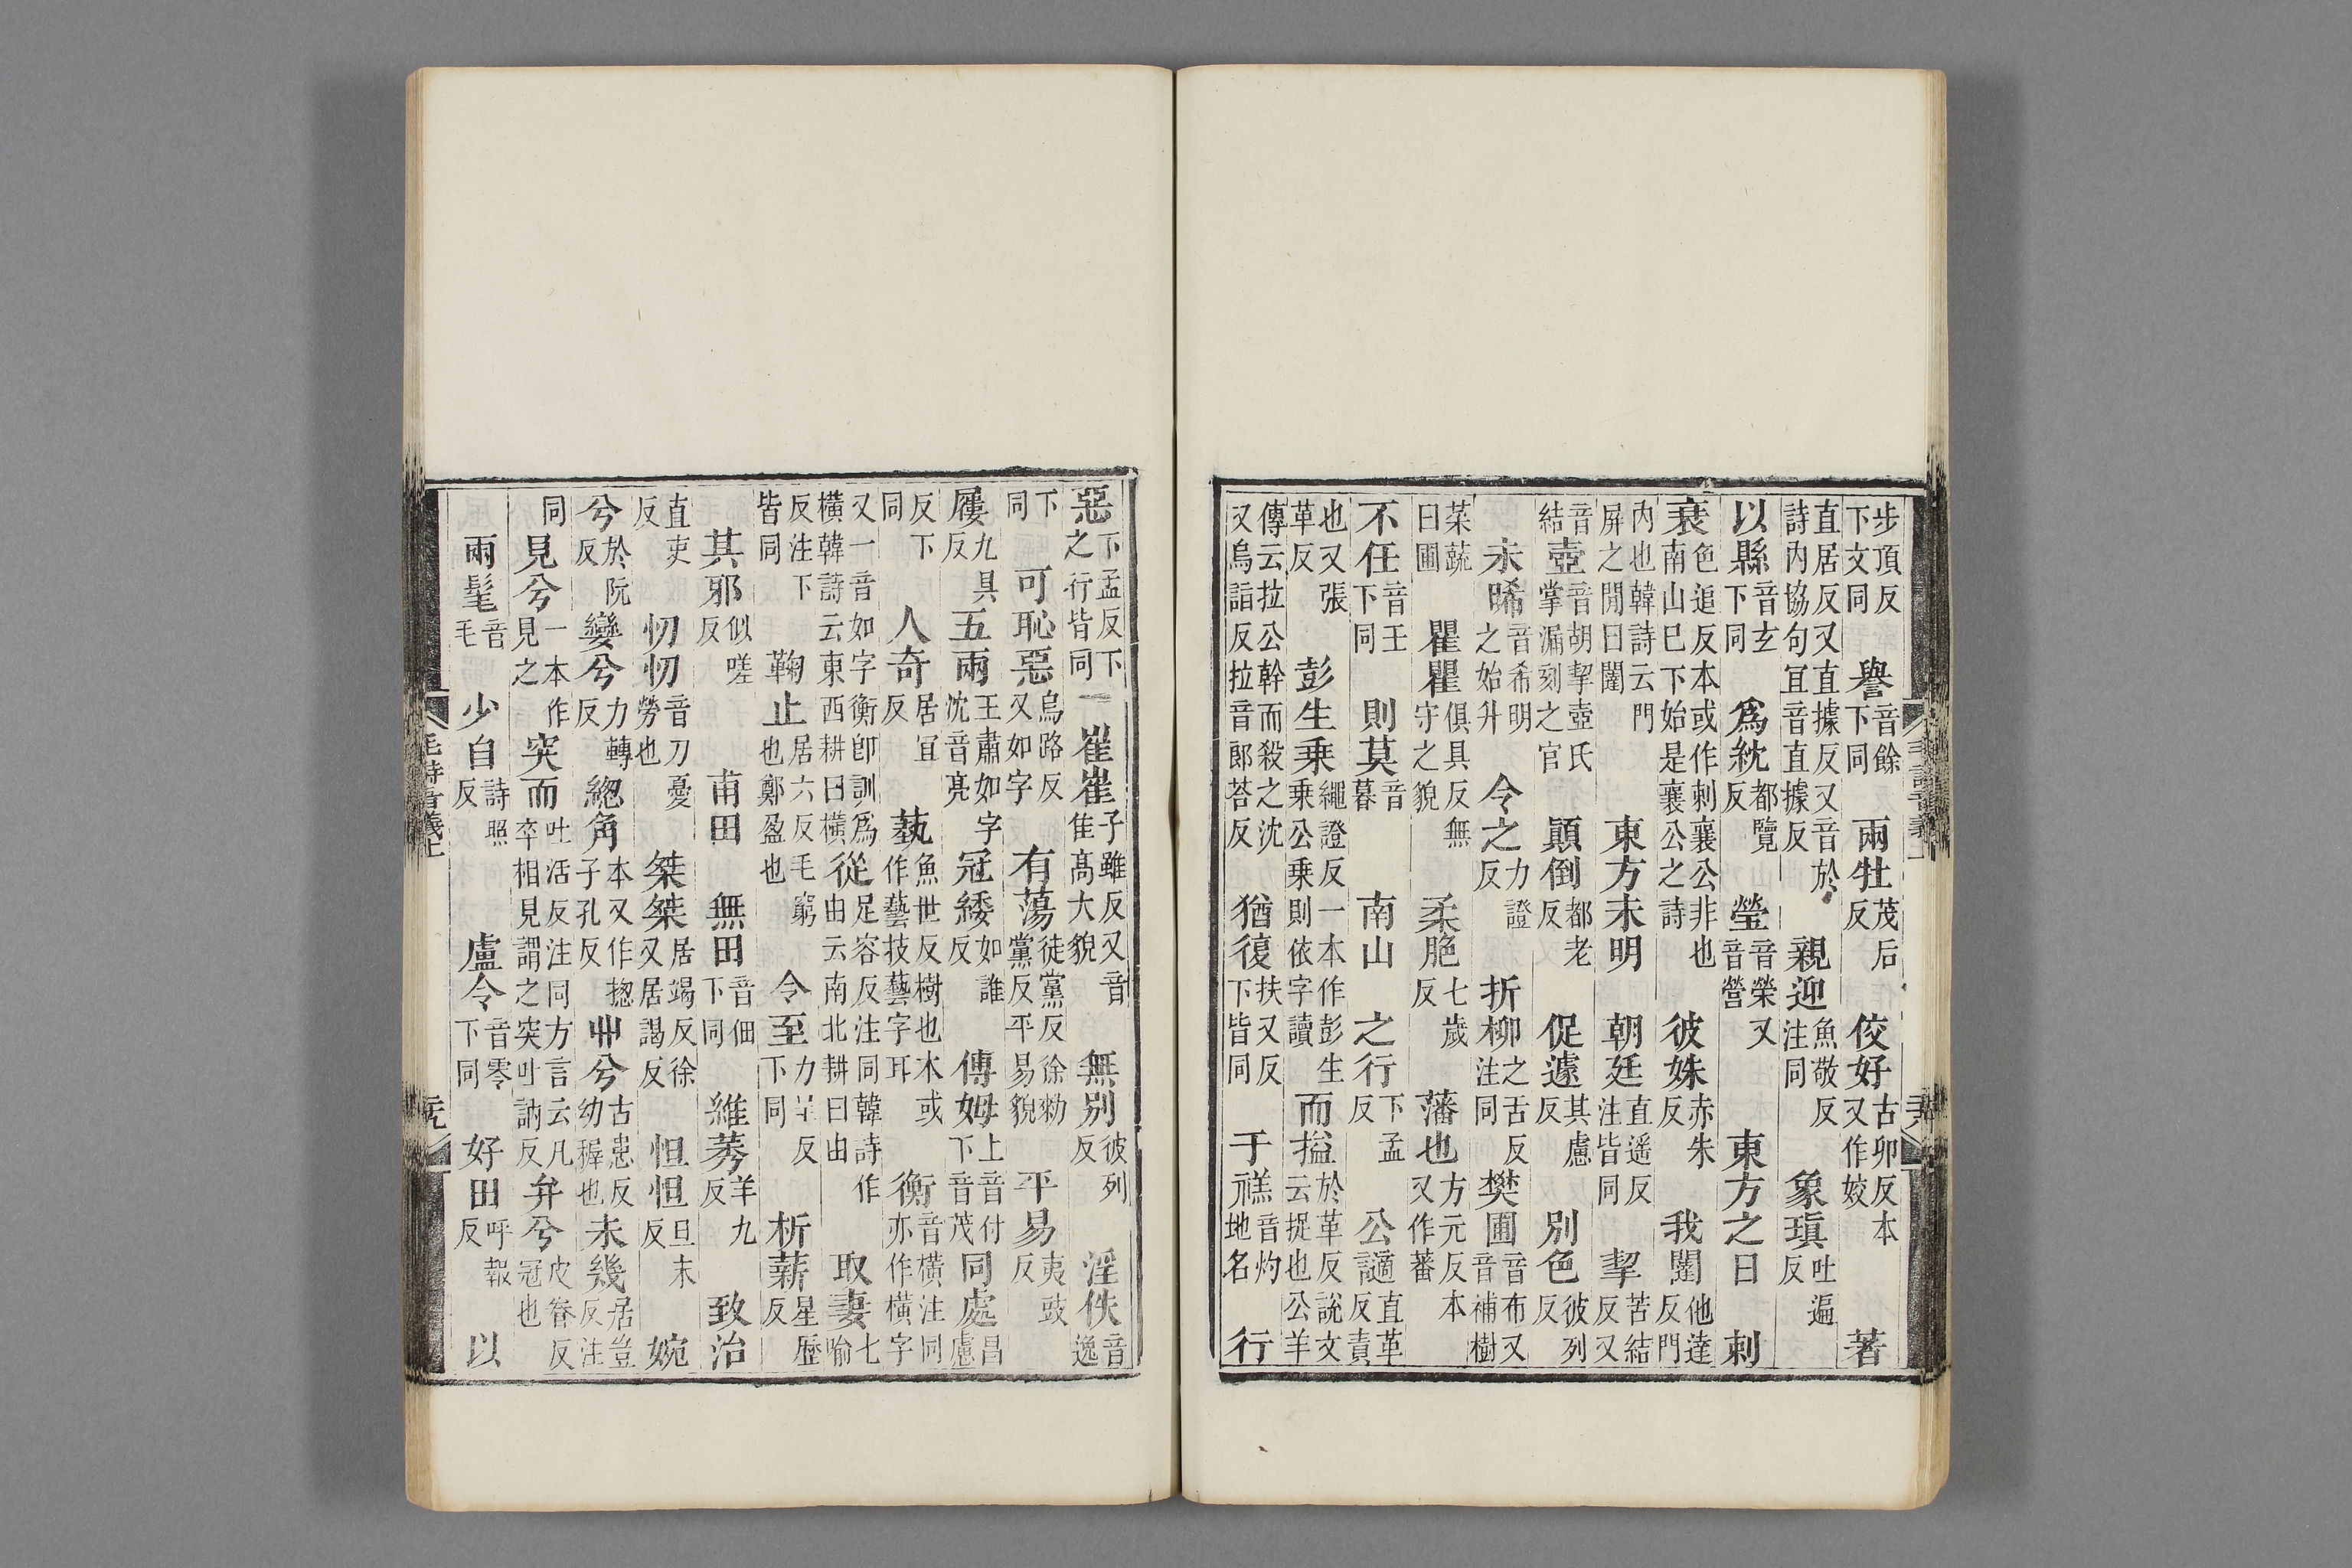 步頂反下文同 譽音餘下同 兩牡茂后反 佼好古卯反本又作姣 著
直居反又直據反又音於詩內協句宜音直據反 親迎魚敬反注同 象瑱吐遍反
以縣音玄下同 爲紞都覽反 瑩音榮又音營 東方之日 刺
衰色追反本或作刺襄公非也南山巳下始是襄公之詩 彼姝赤朱反 我闥他達反門
內也韓詩云門屏之閒曰闥 東方未明 朝廷直遥反注皆同 挈苦結反又
音結 壺音胡挈壺氏掌漏刻之官 顚倒都老反 促遽其慮反 別色彼列反
未晞音希明之始升 令之力證反 折柳之舌反注同 樊圃音布又音補樹
菜蔬曰圃 瞿瞿俱具反無守之貌 柔脃七歲反 藩也方元反本又作蕃
不任音壬下同 則莫音暮 南山 之行下孟反 公讁直革反責
也又張革反 彭生乗繩證反一本作彭生乗公乗則依字讀 而搤於革反說文云捉也公羊
傳云拉公幹而殺之沈又烏詣反拉音郎荅反 猶復扶又反下皆同 于禚音灼地名 行
惡下孟反下之行皆同 崔崔子雖反又音隹高大貌 無別彼列反 淫佚音逸
下同 可恥惡烏路反又如字 有蕩徒黨反徐勑黨反平易貌 平易夷豉反
屨九具反 五兩王肅如字沈音亮 冠緌如誰反 傅姆上音付下音茂 同處昌慮
反下同 人奇居宜反 蓺魚世反樹也本或作藝技藝字耳 衡音橫注同亦作橫字
又一音如字衡卽訓爲橫韓詩云東西耕曰橫 從足容反注同韓詩作由云南北耕曰由 取妻七喻
反注下皆同 鞠止居六反毛窮也鄭盈也 令至力呈反下同 析薪星歷反
其邪似嗟反 甫田 無田音佃下同 維莠羊九反 致治
直吏反 忉忉音刀憂勞也 桀桀居竭反徐又居謁反 怛怛旦末反 婉
兮於阮反 孌兮力轉反 緫角本又作捴子孔反 丱兮古患反幼穉也 未幾居豈反注
同 見兮一本作見之 突而吐活反注同方言云凡卒相見謂之突吐訥反 弁兮皮眷反冠也
兩髦音毛 少自詩照反 盧令音零下同 好田呼報反 以
毛詩音義上